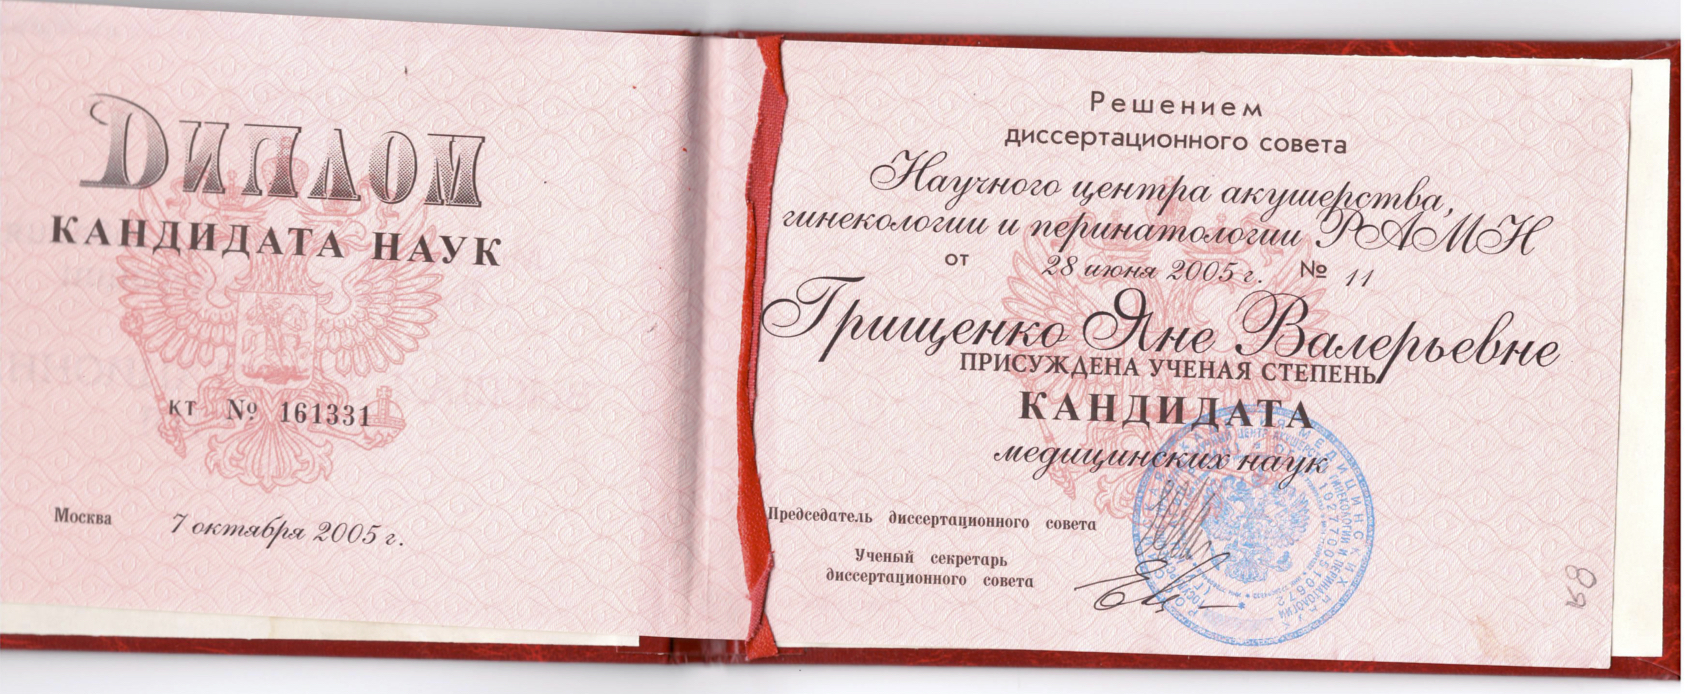 ДИПЛОМ
КАНДИДАТА НАУК
КТ № 161331
Москва 7 октября 2005 г.
Решением
диссертационного совета
Научного центра акушерства,
гинекологии и перинатологии РАМН
от 28 июня 2005 г. № 11
Грищенко Яне Валерьевне
ПРИСУЖДЕНА УЧЕНАЯ СТЕПЕНЬ
КАНДИДАТА
медицинских наук
Председатель диссертационного совета
Ученый секретарь
диссертационного совета